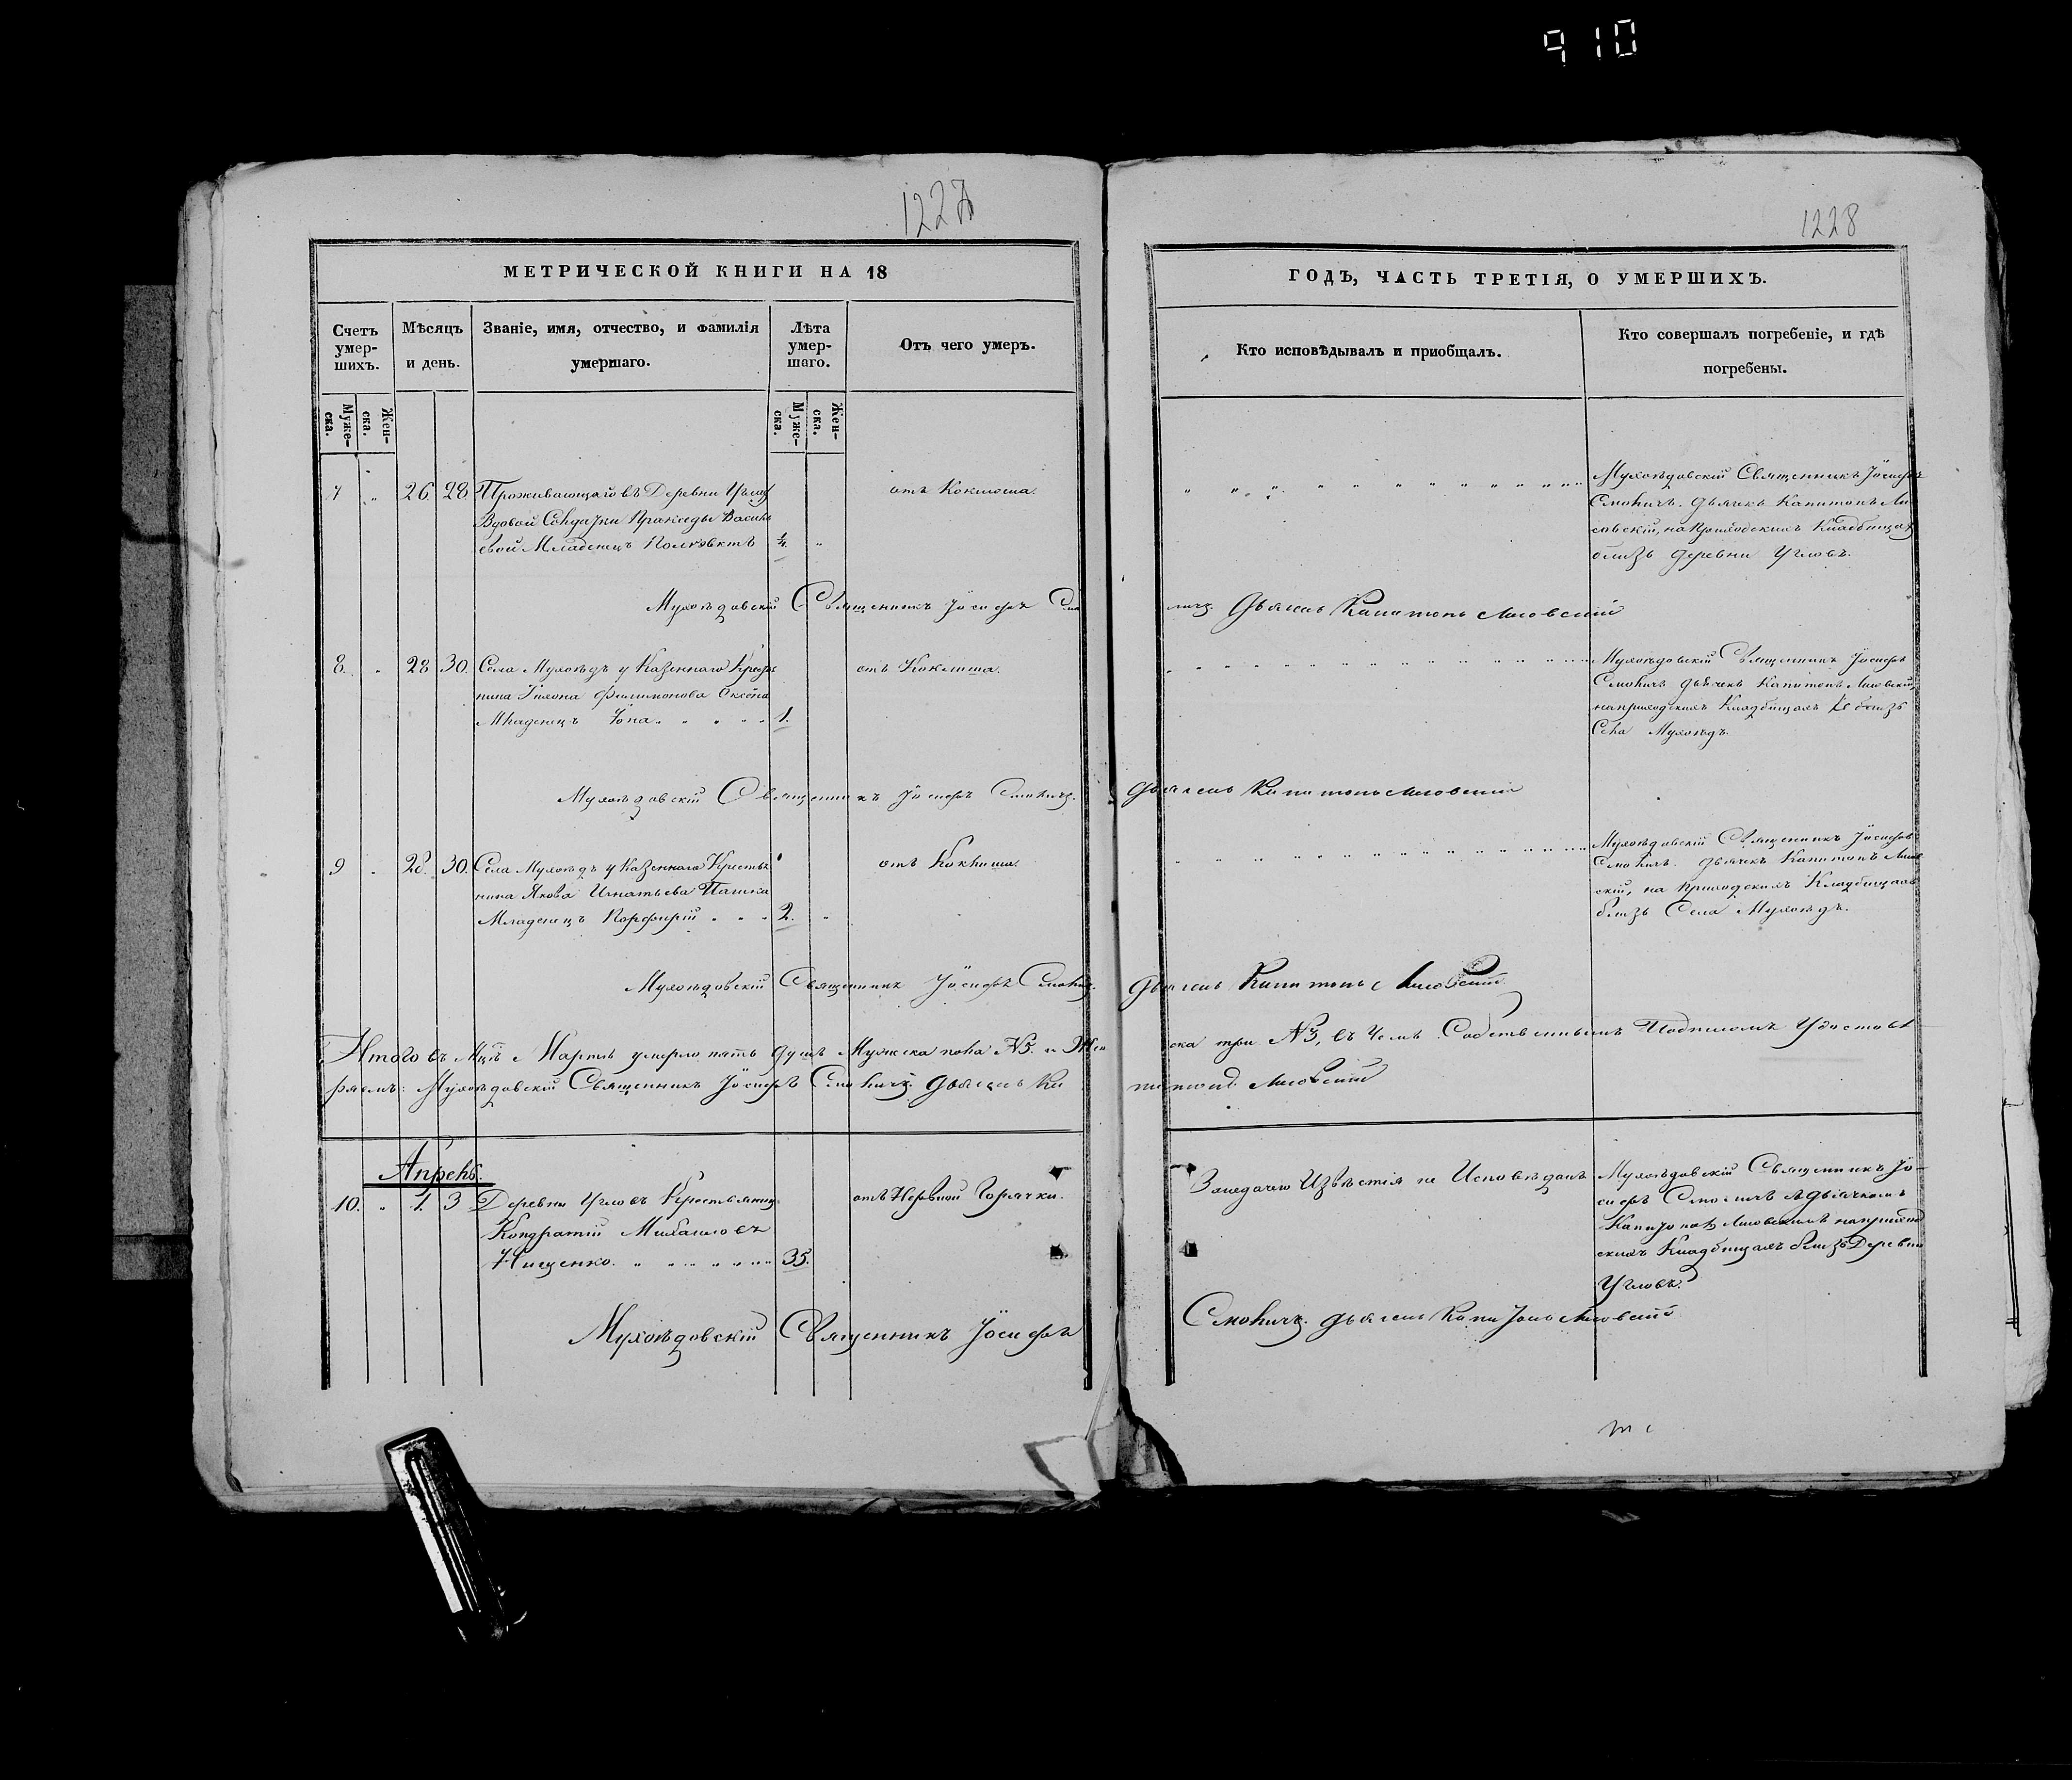 910
1227
1228
МЕТРИЧЕСКОЙ КНИГИ НА 18
ГОДЪ, ЧАСТЬ ТРЕТІЯ, О УМЕРШИХЪ.
Счетъ умер-шихъ.
Мѣсяцъ и день.
Званіе, имя, отчество, и фамилія умершаго.
Лѣта умер-шаго.
Отъ чего умеръ.
Кто исповѣдывалъ и приобщалъ.
Кто совершалъ погребеніе, и гдѣ погребены.
Муже-ска.
Жен-ска.
Муже-ска.
Жен-ска.
7 " 26 28 Проживающаго въ Деревни
Вдовой Солдатки Пракседы Василь
евой Младенецъ Полиевктъ ¼ "
отъ Коклюша.
Мухоѣдовскій Священникъ Іосифъ
Смоличъ. Дьячекъ Капитонъ Ли
совскій, на Приходскихъ Кладбищахъ
близъ Деревни Угловъ.
Мухоѣдовскій Священникъ Іосифъ Смо
личъ. Дьячекъ Капитонъ Лисовскій
8. " 28 30. Села Мухоѣдъ у Казеннаго Крестья
нина Филимонова
Младенецъ Іона 1.
отъ Коклюша.
Мухоѣдовскій Священникъ Іосифъ
Смоличъ Дьячекъ Капитонъ Лисовскій,
на приходскихъ Кладбищахъ близъ
Села Мухоѣдъ.
Мухоѣдовскій Священникъ Іосифъ Смоличъ.
Дьячекъ Капитонъ Лисовскій
9 " 28. 30. Села Мухоѣдъ у Казеннаго Крестья
нина Якова Игнатьева Пашка
Младенецъ Порфирій 2. "
отъ Коклюша.
Мухоѣдовскій Священникъ Іосифъ
Смоличъ. Дьячекъ Капитонъ Лисов
скій, на приходскихъ Кладбищахъ
близъ Села Мухоѣдъ.
Мухоѣдовскій Священникъ Іосифъ Смоличъ.
Дьячекъ Капитонъ Лисовскій
Итого въ Мцѣ Мартѣ умерло пять душъ Мужска пола №5. и Жен
ска три №3, въ чемъ Собственнымъ Подписомъ Удостовѣ
ряемъ: Мухоѣдовскій Священникъ Іосифъ Смоличъ. Дьячекъ Ка
питонъ Лисовскій
Апрель.
10. " 1. 3 Деревни Угловъ Крестьянинъ
Кондратій Михаиловъ
Нищенко. 35.
отъ Нервной Горячки.
Занедачею Извѣстія не Исповѣданъ
Мухоѣдовскій Священникъ Іо-
сифъ Смоличъ съ Дьячкомъ
Капитономъ Лисовскимъ на приход
скихъ Кладбищахъ близъ Деревни
Угловъ.
Мухоѣдовскій Священникъ Іосифъ
Смоличъ. Дьячекъ Капитонъ Лисовскій